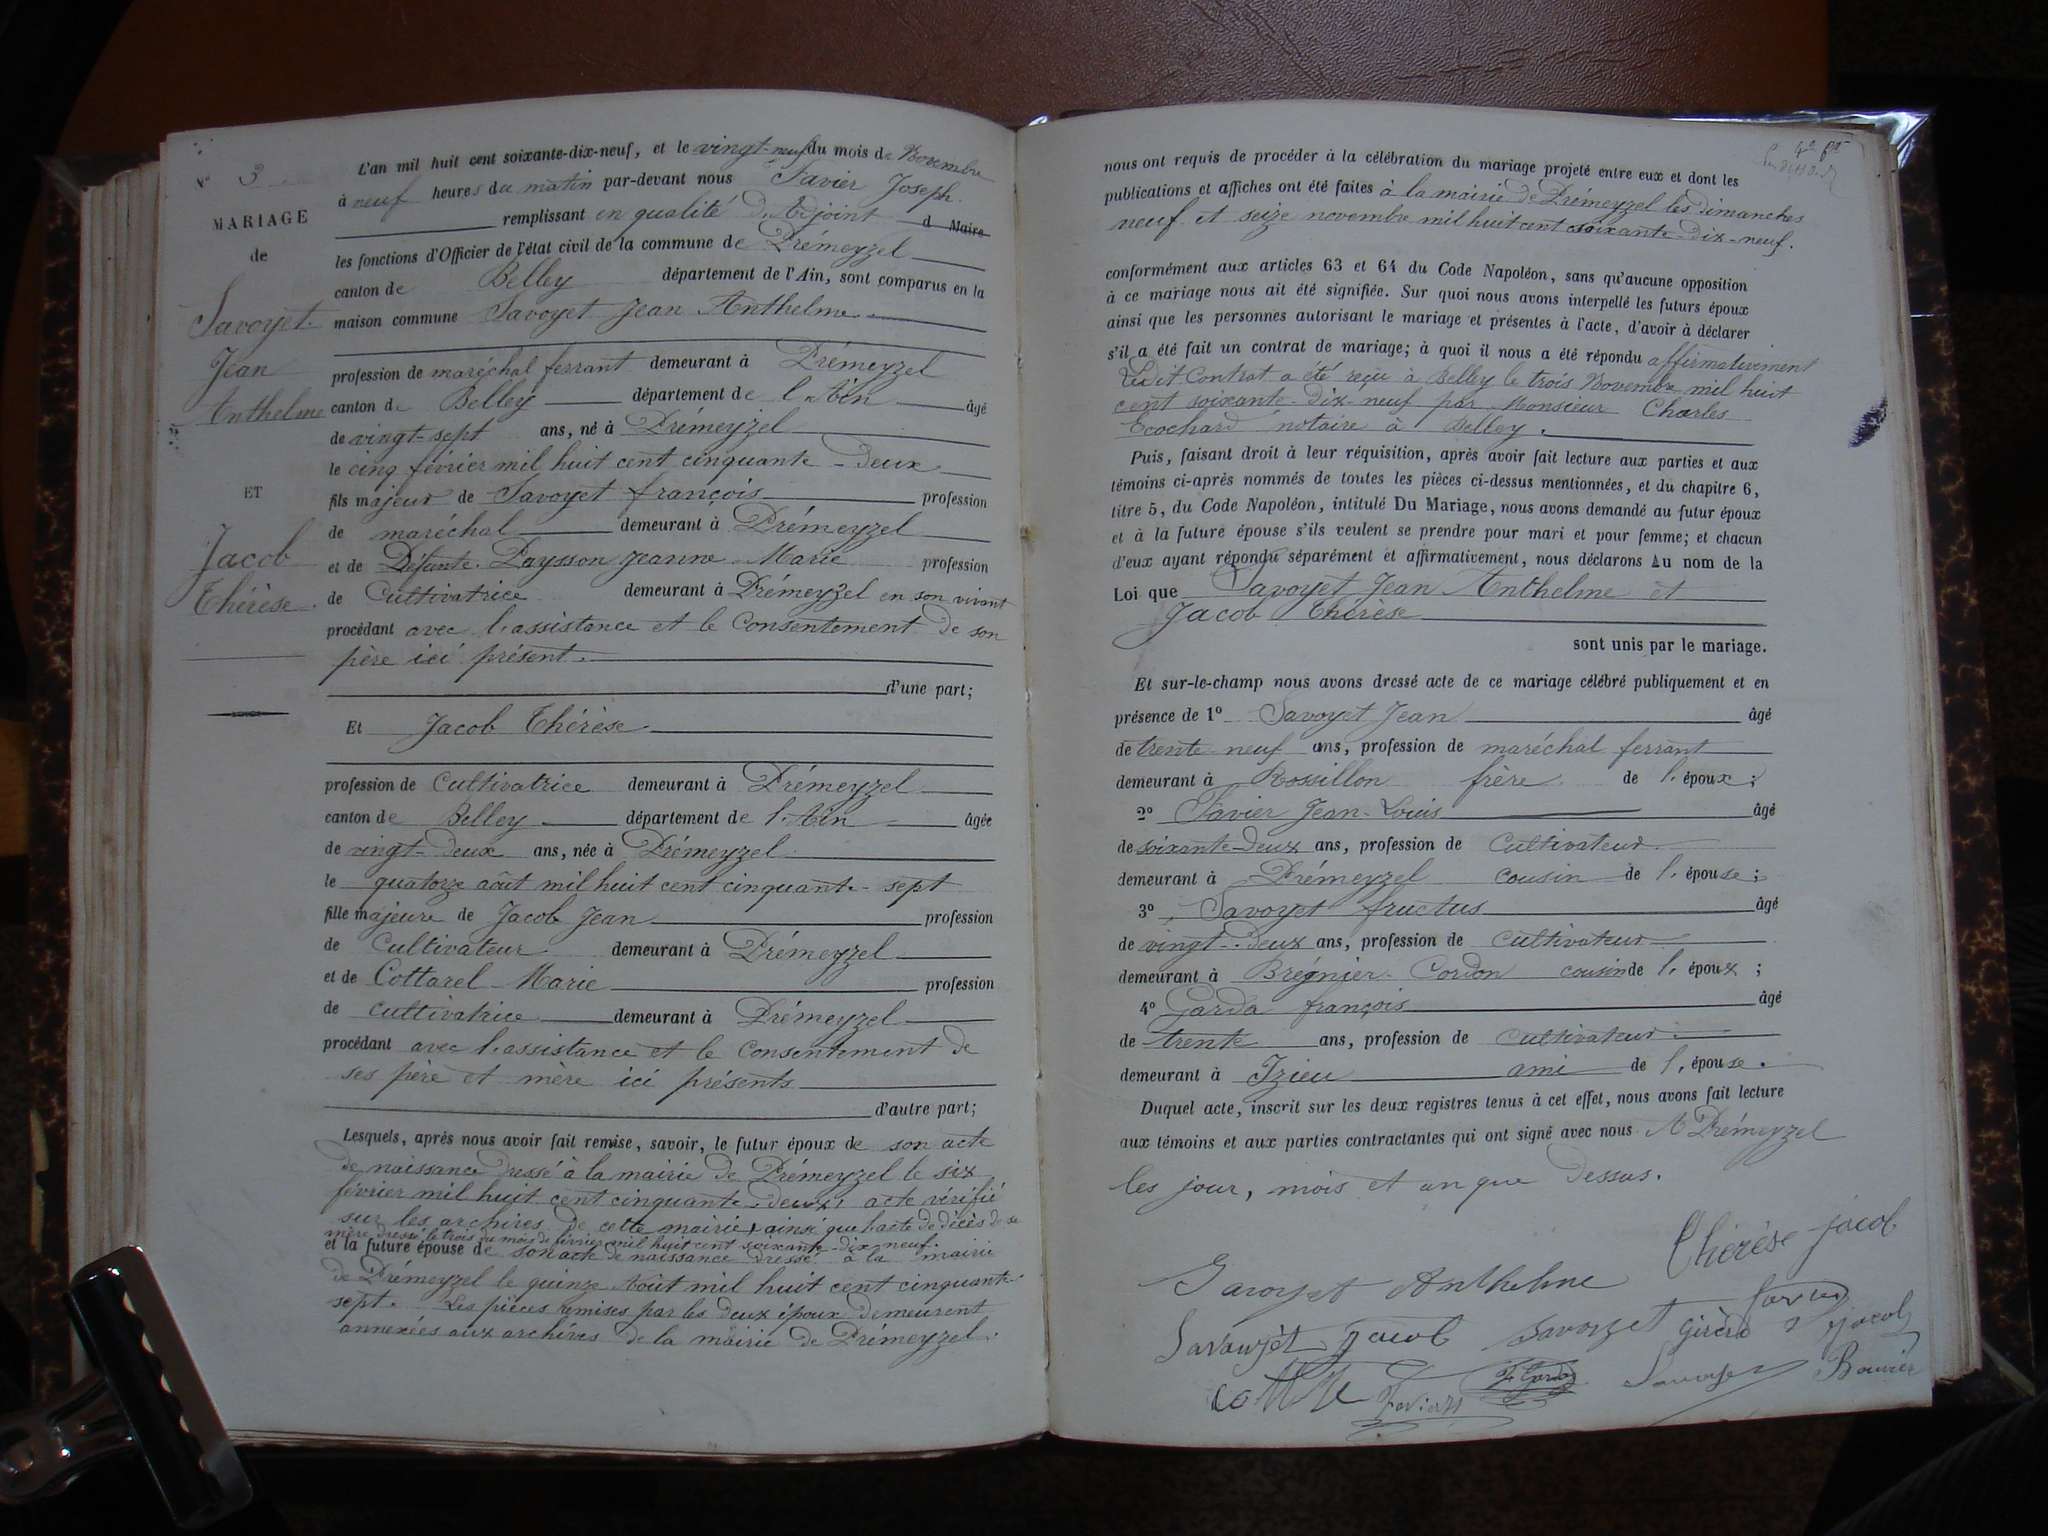 N° 3
MARIAGE
de
Savoyet
Jean
Anthelme
ET
Jacob
Thérèse.
L'an mil huit cent soixante-dix-neuf, et le vingt-neuf du mois de Novembre
à neuf heures du matin par-devant nous Favier Joseph
remplissant en qualité d'Adjoint d Maire
les fonctions d'Officier de l'état civil de la commune de Prémeyzel
canton de Belley département de l'Ain, sont comparus en la
maison commune Savoyet Jean Anthelme
profession de maréchal ferrant demeurant à Prémeyzel
canton de Belley département de l'Ain âgé
de vingt-sept ans, né à Prémeyzel
le cinq février mil huit cent cinquante-deux
fils majeur de Savoyet françois profession
de maréchal demeurant à Prémeyzel
et de Défunte Paysson Jeanne Marie profession
de Cultivatrice demeurant à Prémeyzel en son vivant
procédant avec l'assistance et le Consentement de son
père ici présent.
d'une part;
Et Jacob Thérèse
profession de Cultivatrice demeurant à Prémeyzel
canton de Belley département de l'Ain âgée
de vingt-deux ans, née à Prémeyzel
le quatorze août mil huit cent cinquante-sept
fille majeure de Jacob Jean profession
de Cultivateur demeurant à Prémeyzel
et de Cottarel Marie profession
de cultivatrice demeurant à Prémeyzel
procédant avec l'assistance et le Consentement de
ses père et mère ici présents
d'autre part;
Lesquels, après nous avoir fait remise, savoir, le futur époux de son acte
de naissance dressé à la mairie de Prémeyzel le six
février mil huit cent cinquante-deux, acte vérifié
sur les archives de cette mairie, ainsi que l'acte de décès de sa
mère dressé le trois du mois de février mil huit cent soixante-dix neuf.
et la future épouse de son acte de naissance dressé à la mairie
de Prémeyzel le quinze Août mil huit cent cinquante-
sept. Les pièces remises par les deux époux demeurent
annexées aux archives de la mairie de Prémeyzel.
nous ont requis de procéder à la célébration du mariage projeté entre eux et dont les
publications et affiches ont été faites à la mairie de Prémeyzel les dimanches
neuf et seize novembre mil huit cent soixante-dix-neuf.
conformément aux articles 63 et 64 du Code Napoléon, sans qu'aucune opposition
à ce mariage nous ait été signifiée. Sur quoi nous avons interpellé les futurs époux
ainsi que les personnes autorisant le mariage et présentes à l'acte, d'avoir à déclarer
s'il a été fait un contrat de mariage; à quoi il nous a été répondu affirmativement
Ledit Contrat a été reçu à Belley le trois Novembre mil huit
cent soixante-dix-neuf par Monsieur Charles
Ecochard notaire à Belley.
Puis, faisant droit à leur réquisition, après avoir fait lecture aux parties et aux
témoins ci-après nommés de toutes les pièces ci-dessus mentionnées, et du chapitre 6,
titre 5, du Code Napoléon, intitulé Du Mariage, nous avons demandé au futur époux
et à la future épouse s'ils veulent se prendre pour mari et pour femme; et chacun
d'eux ayant répondu séparément et affirmativement, nous déclarons Au nom de la
Loi que Savoyet Jean Anthelme et
Jacob Thérèse
sont unis par le mariage.
Et sur-le-champ nous avons dressé acte de ce mariage célébré publiquement et en
présence de 1° Savoyet Jean âgé
de trente-neuf ans, profession de maréchal ferrant
demeurant à Rossillon frère de l'époux;
2° Favier Jean-Louis âgé
de soixante-deux ans, profession de Cultivateur
demeurant à Prémeyzel cousin de l'épouse;
3° Savoyet fructus âgé
de vingt-deux ans, profession de cultivateur
demeurant à Brégnier-Cordon cousin de l'époux;
4° Garda françois âgé
de trente ans, profession de cultivateur
demeurant à Izieu ami de l'épouse.
Duquel acte, inscrit sur les deux registres tenus à cet effet, nous avons fait lecture
aux témoins et aux parties contractantes qui ont signé avec nous A Prémeyzel
les jour, mois et an que dessus.
Thérèse Jacob
Savoyet Anthelme
Savouyet Jacob Savoyet Girerd Favier Jacob
Favier F Garda Savoyet Bouvier